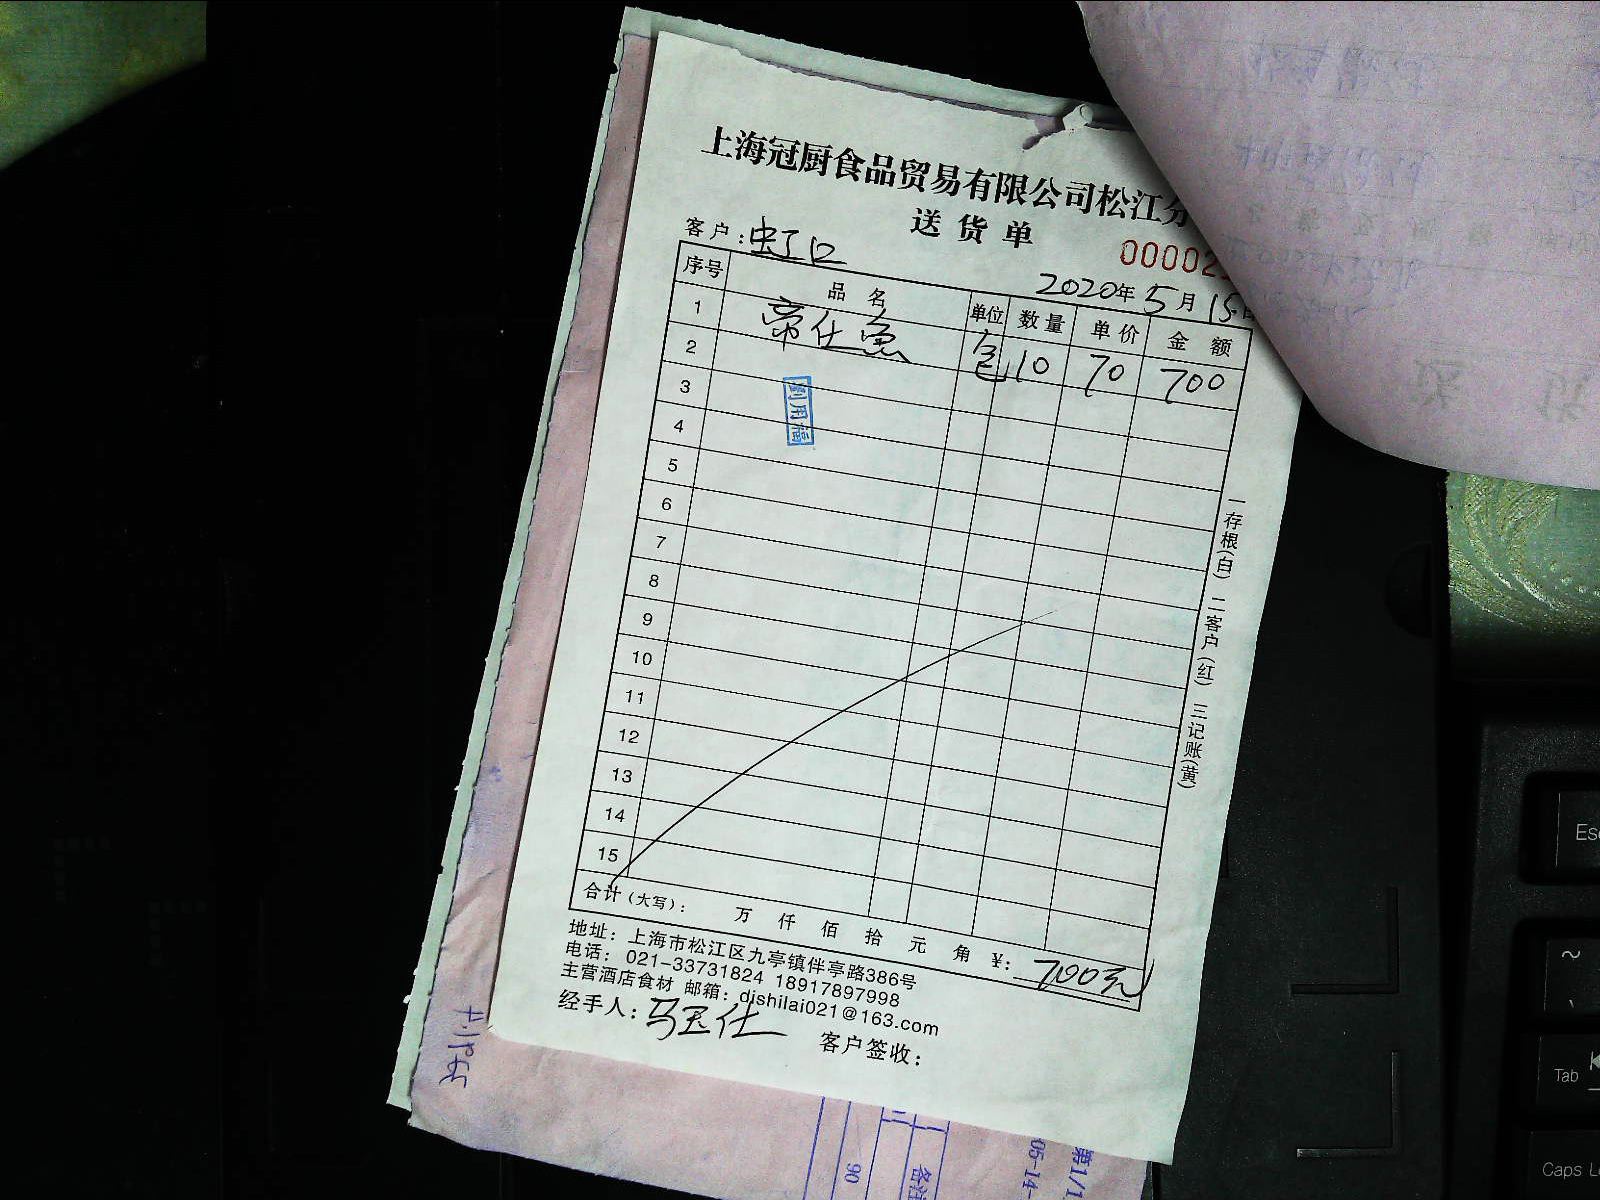 上海冠厨食品贸易有限公司松江分
送货单
00002
客户:虹口
2020年5月15日
序号 品名 单位 数量 单价 金额
1 帝仕鱼 包 10 70 700
2
3
4
5
6
7
8
9
10
11
12
13
14
15
合计(大写): 万 仟 佰 拾 元 角 ¥: 700元
地址:上海市松江区九亭镇伴亭路386号
电话:021-33731824 18917897998
主营酒店食材 邮箱:dishilai021@163.com
经手人:马玉仕 客户签收:
一存根(白) 二客户(红) 三记账(黄)
第1/1
05-14-
90
Esc
~
Tab
Caps L